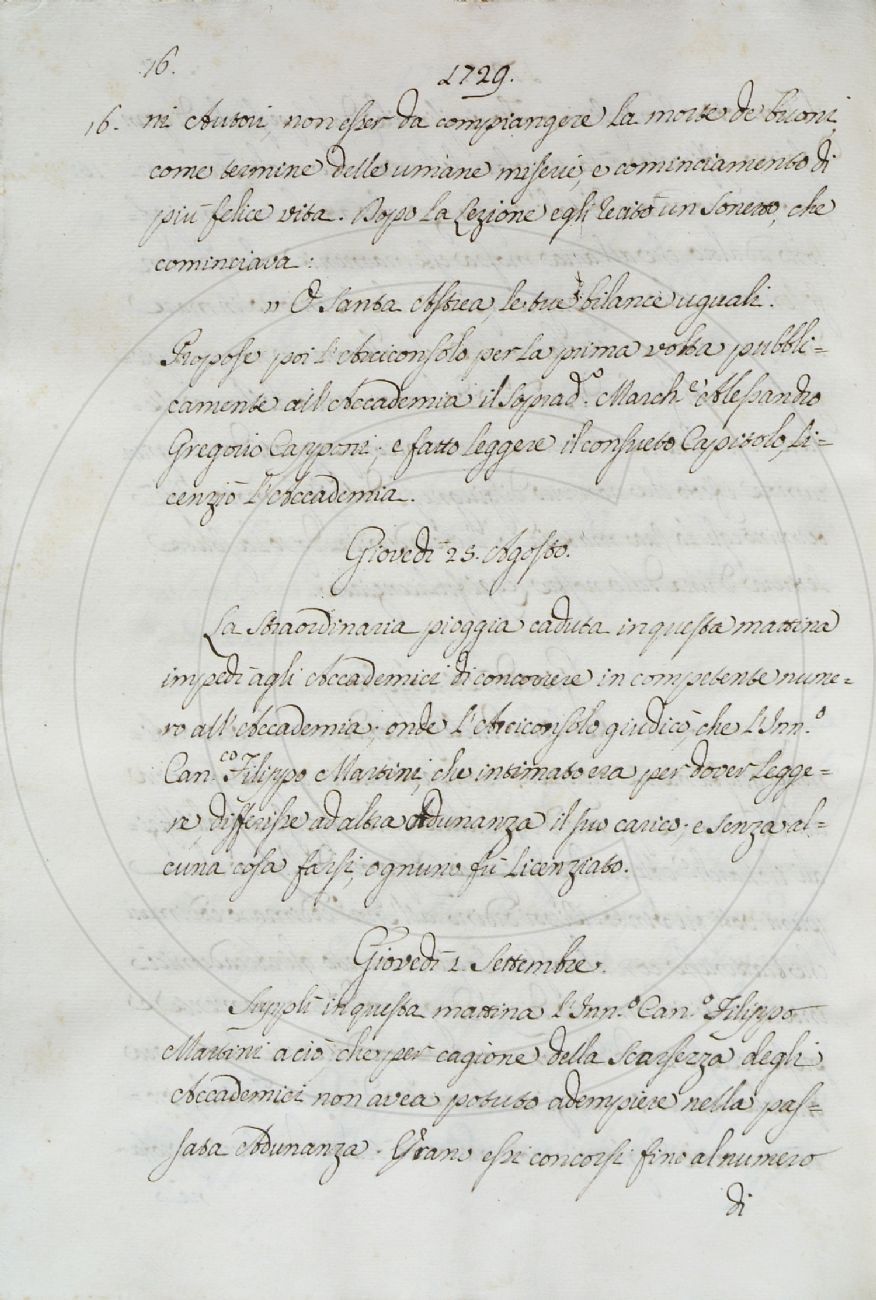 16.
1729.
16. ni Autori, non esser da compiangere la morte de' buoni,
come termine delle umane miserie, e cominciamento di
più felice vita. Dopo la Lezione egli recitò un Sonetto, che
cominciava:
" O Santa Astrea, le tue bilance uguali.
Propose poi l'Arciconsolo per la prima volta pubbli=
camente all'Accademia il Soprad.º March.e Alessandro
Gregorio Capponi; e fatto leggere il consueto Capitolo, li=
cenziò l'Accademia.
Giovedì 25. Agosto.
La straordinaria pioggia caduta in questa mattina
impedì agli Accademici di concorrere in competente nume=
ro all'Accademia; onde l'Arciconsolo giudicò, che l'Inn.º
Can.co Filippo Martini, che intimato era per dover legge=
re, differisse ad altra Adunanza il suo carico; e senza al=
cuna cosa farsi, ognuno fù licenziato.
Giovedì 1. Settembre.
Supplì in questa mattina l'Inn.º Can.º Filippo
Martini a ciò, che per cagione della scarsezza degli
Accademici non avea potuto adempiere nella pas=
sata Adunanza. Erano essi concorsi fino al numero
di